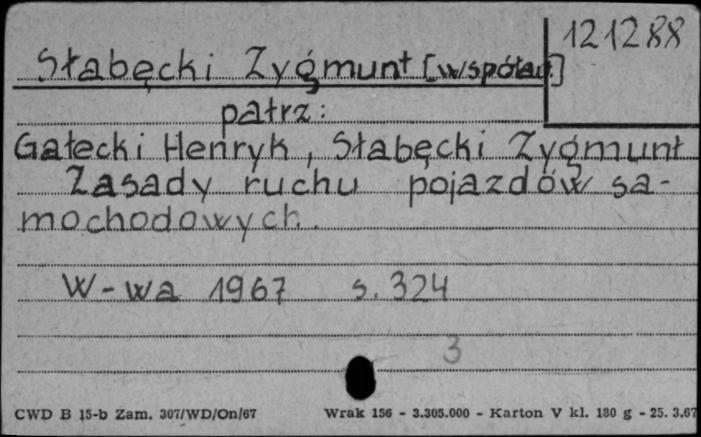 121288
Słabęcki Zygmunt [współaut.]
patrz:
Gałecki Henryk, Słabęcki Zygmunt
Zasady ruchu pojazdów sa-
mochodowych.
W-wa 1967 s. 324
3
CWD B 15-b Zam. 307/WD/On/67 Wrak 156 - 3.305.000 - Karton V kl. 180 g - 25. 3.67